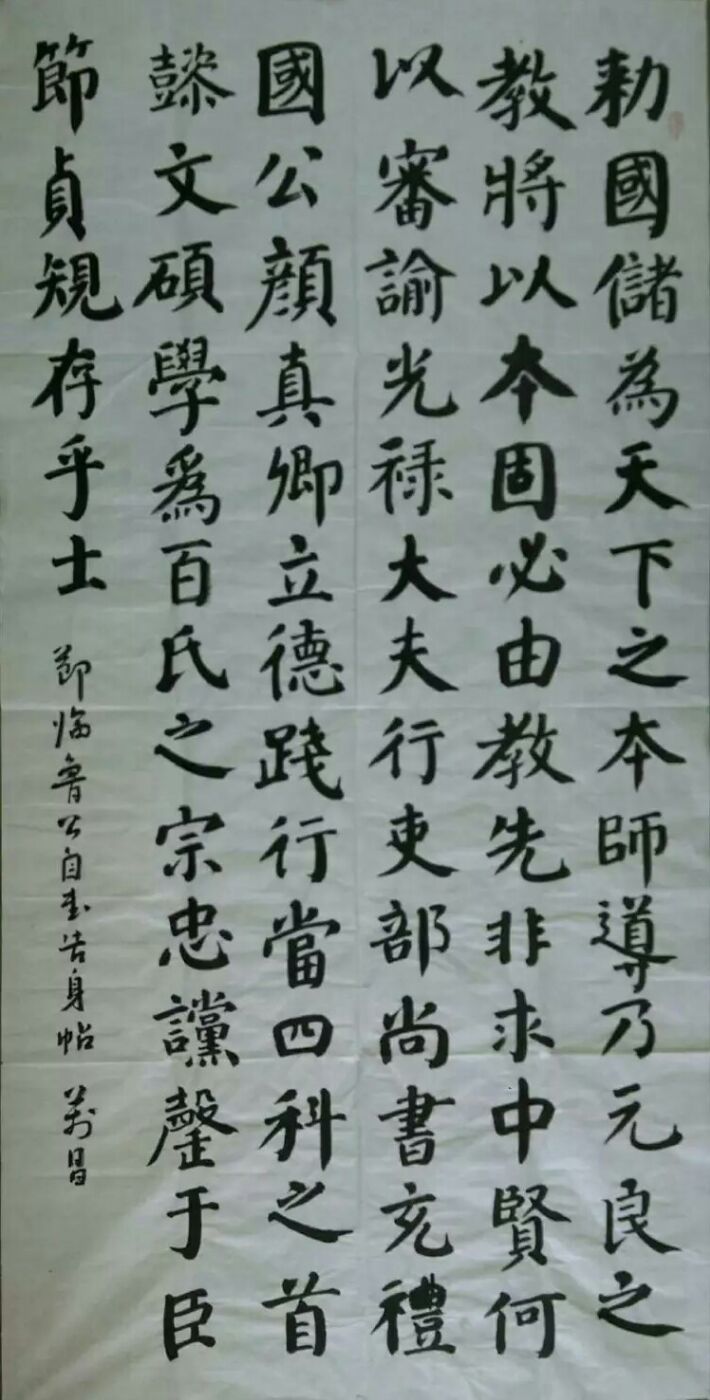 勅國儲為天下之本師導乃元良之
教將以本固必由教先非求中賢何
以審諭光禄大夫行吏部尚書充禮
國公顔真卿立德踐行當四科之首
懿文碩學爲百氏之宗忠讜罄于臣
節貞規存乎士
節臨魯公自書告身帖 萬昌